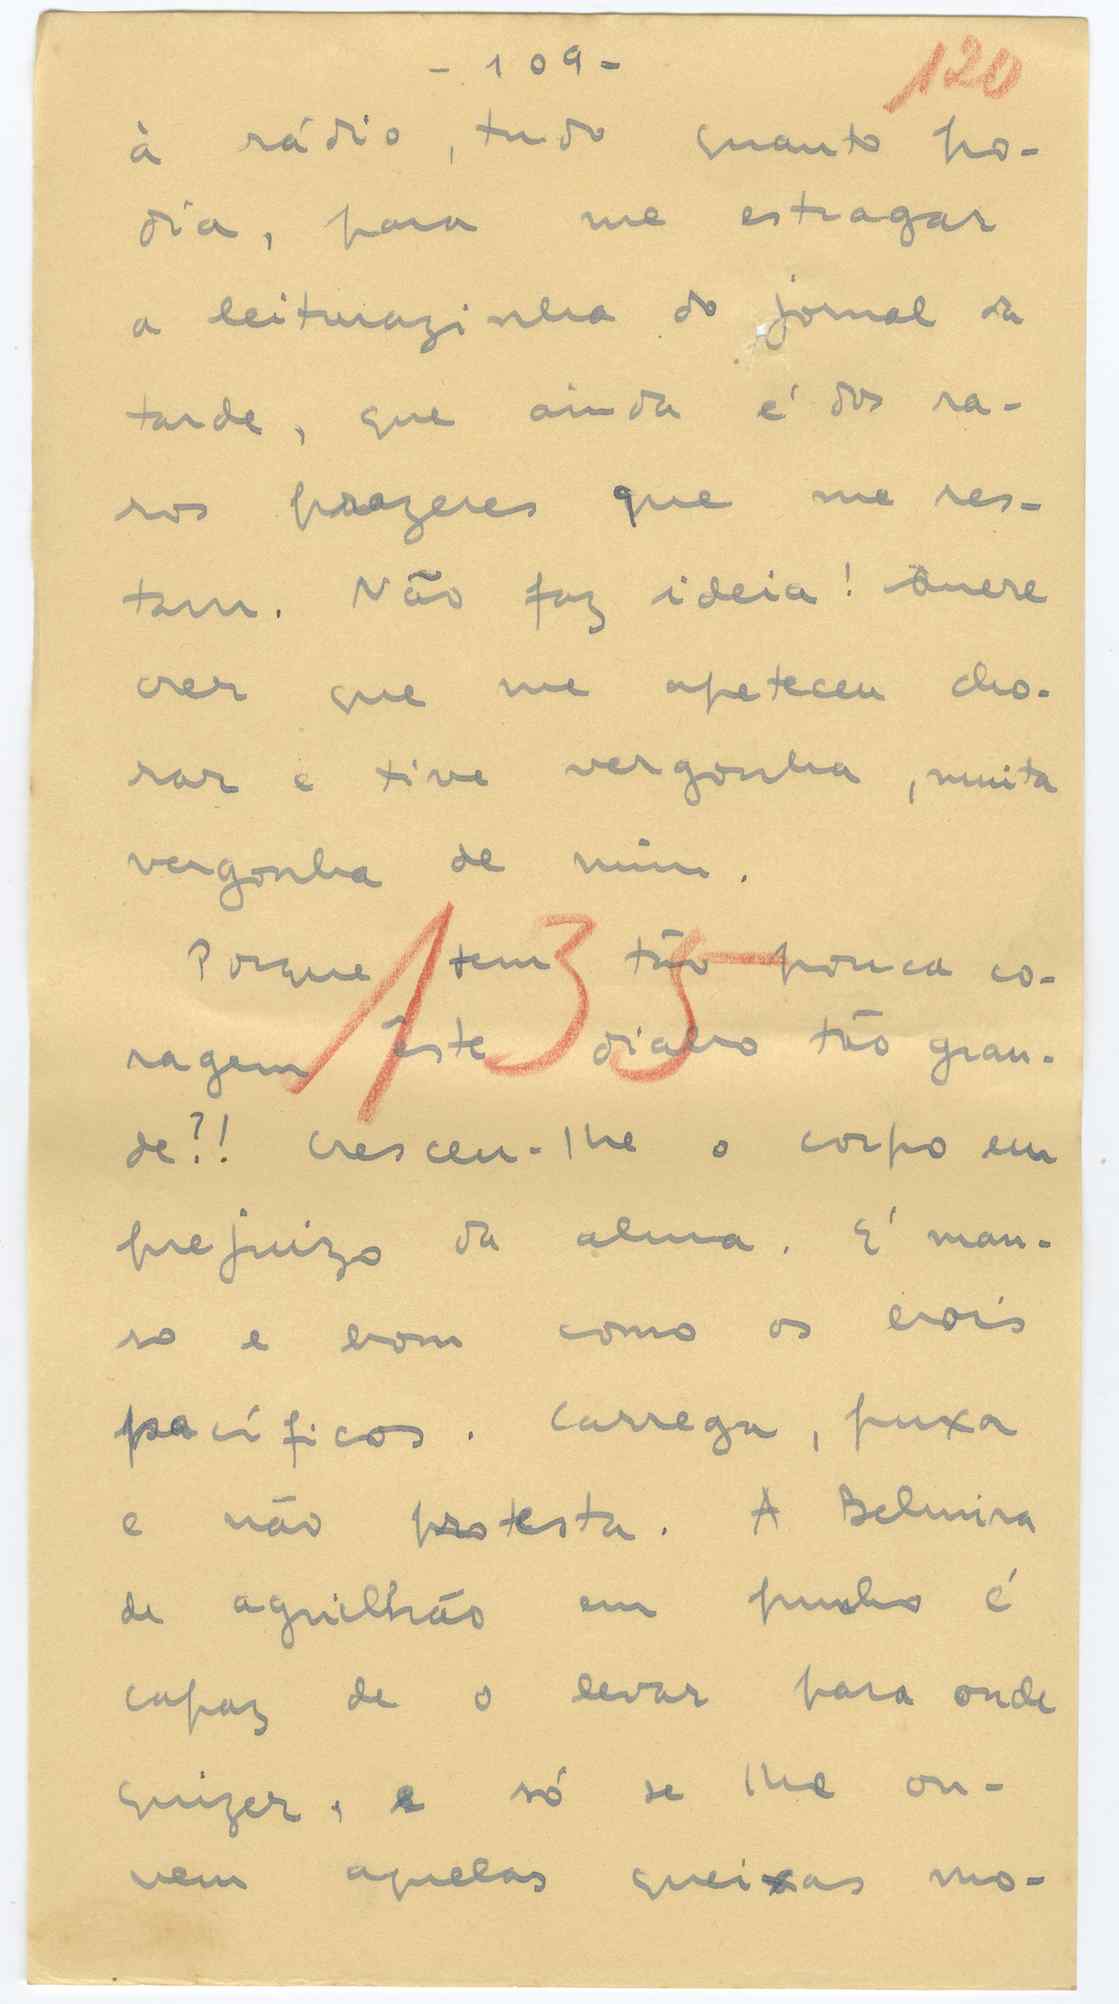 - 109 -
120
à rádio, tudo quanto po-
dia, para me estragar
a leiturazinha do jornal da
tarde, que ainda é dos ra-
ros prazeres que me res-
tam. Não faz ideia! Quere
crer que me apeteceu cho-
rar e tive vergonha, muita
vergonha de mim.
Porque tem tão pouca co-
135
ragem êste diabo tão gran-
de?! Cresceu-lhe o corpo em
prejuizo da alma. É man-
so e bom como os bois
pacíficos. Carrega, puxa
e não protesta. A Belmira
de aguilhão em punho é
capaz de o levar para onde
quizer, e só se lhe ou-
vem aquelas queixas mo-